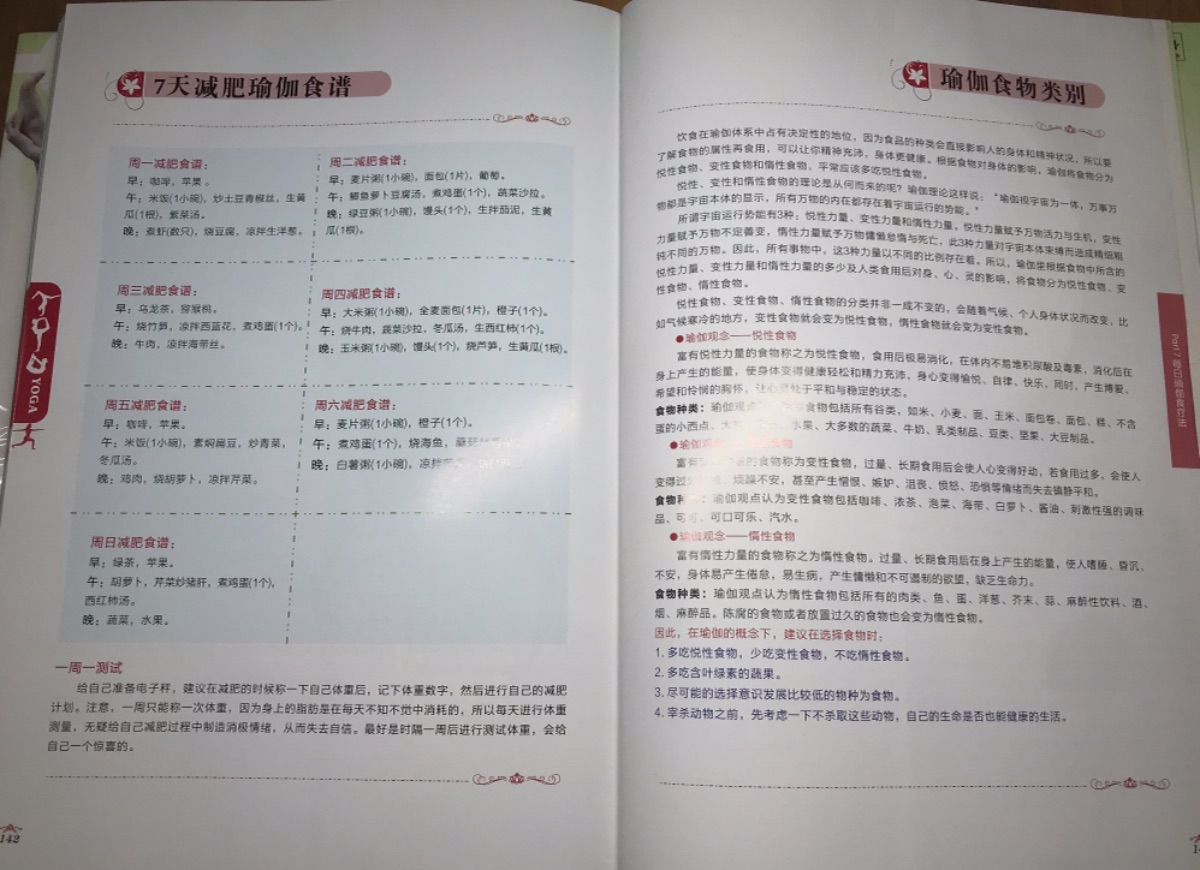 7天减肥瑜伽食谱
周一减肥食谱：
早：咖啡，苹果。
午：米饭(1小碗)，炒土豆青椒丝，生黄
瓜(1根)，紫菜汤。
晚：煮虾(数只)，烧豆腐，凉拌生洋葱。
周二减肥食谱：
早：麦片粥(1小碗)，面包(1片)，葡萄。
午：鲫鱼萝卜豆腐汤，煮鸡蛋(1个)，蔬菜沙拉。
晚：绿豆粥(1小碗)，馒头(1个)，生拌茄泥，生黄
瓜(1根)。
周三减肥食谱：
早：乌龙茶，猕猴桃。
午：烧竹笋，凉拌西蓝花，煮鸡蛋(1个)。
晚：牛肉，凉拌海带丝。
周四减肥食谱：
早：大米粥(1小碗)，全麦面包(1片)，橙子(1个)。
午：烧牛肉，蔬菜沙拉，冬瓜汤，生西红柿(1个)。
晚：玉米粥(1小碗)，馒头(1个)，烧芦笋，生黄瓜(1根)。
周五减肥食谱：
早：咖啡，苹果。
午：米饭(1小碗)，素焖扁豆，炒青菜，
冬瓜汤。
晚：鸡肉，烧胡萝卜，凉拌芹菜。
周六减肥食谱：
早：麦片粥(1小碗)，橙子(1个)。
午：煮鸡蛋(1个)，烧海鱼，蘑菇
晚：白薯粥(1小碗)，凉拌
周日减肥食谱：
早：绿茶，苹果。
午：胡萝卜，芹菜炒猪肝，煮鸡蛋(1个)，
西红柿汤。
晚：蔬菜，水果。
一周一测试
给自己准备电子秤，建议在减肥的时候称一下自己体重后，记下体重数字，然后进行自己的减肥
计划。注意，一周只能称一次体重，因为身上的脂肪是在每天不知不觉中消耗的，所以每天进行体重
测量，无疑给自己减肥过程中制造消极情绪，从而失去自信。最好是时隔一周后进行测试体重，会给
自己一个惊喜的。
142
YOGA
瑜伽食物类别
饮食在瑜伽体系中占有决定性的地位，因为食品的种类会直接影响人的身体和精神状况，所以要
了解食物的属性再食用，可以让你精神充沛，身体更健康。根据食物对身体的影响，瑜伽将食物分为
悦性食物、变性食物和惰性食物，平常应该多吃悦性食物。
悦性、变性和惰性食物的理论是从何而来的呢？瑜伽理论这样说：“瑜伽视宇宙为一体，万事万
物都是宇宙本体的显示，所有万物的内在都存在着宇宙运行的势能。”
所谓宇宙运行势能有3种：悦性力量、变性力量和惰性力量。悦性力量赋予万物活力与生机，变性
力量赋予万物不定善变，惰性力量赋予万物慵懒怠惰与死亡，此3种力量对宇宙本体束缚而造成精细粗
钝不同的万物。因此，所有事物中，这3种力量以不同的比例存在着。所以，瑜伽是根据食物中所含的
悦性力量、变性力量和惰性力量的多少及人类食用后对身、心、灵的影响，将食物分为悦性食物、变
性食物、惰性食物。
悦性食物、变性食物、惰性食物的分类并非一成不变的，会随着气候、个人身体状况而改变，比
如气候寒冷的地方，变性食物就会变为悦性食物，惰性食物就会变为变性食物。
●瑜伽观念——悦性食物
富有悦性力量的食物称之为悦性食物，食用后极易消化，在体内不易堆积尿酸及毒素，消化后在
身上产生的能量，使身体变得健康轻松和精力充沛，身心变得愉悦、自律、快乐，同时，产生博爱、
希望和怜悯的胸怀，让心灵处于平和与稳定的状态。
食物种类：瑜伽观点 食物包括所有谷类，如米、小麦、面、玉米、面包卷、面包、糕、不含
蛋的小西点、大 水果、大多数的蔬菜、牛奶、乳类制品、豆类、坚果、大豆制品。
●瑜伽观 食物
富有 的食物称为变性食物，过量、长期食用后会使人心变得好动，若食用过多，会使人
变得过 烦躁不安，甚至产生憎恨、嫉妒、沮丧、愤怒、恐惧等情绪而失去镇静平和。
食物种类：瑜伽观点认为变性食物包括咖啡、浓茶、泡菜、海带、白萝卜、酱油、刺激性强的调味
品、可可、可口可乐、汽水。
●瑜伽观念——惰性食物
富有惰性力量的食物称之为惰性食物。过量、长期食用后在身上产生的能量，使人嗜睡、昏沉、
不安，身体易产生倦怠，易生病，产生慵懒和不可遏制的欲望，缺乏生命力。
食物种类：瑜伽观点认为惰性食物包括所有的肉类、鱼、蛋、洋葱、芥末、蒜、麻醉性饮料、酒、
烟、麻醉品。陈腐的食物或者放置过久的食物也会变为惰性食物。
因此，在瑜伽的概念下，建议在选择食物时：
1. 多吃悦性食物，少吃变性食物，不吃惰性食物。
2. 多吃含叶绿素的蔬果。
3. 尽可能的选择意识发展比较低的物种为食物。
4. 宰杀动物之前，先考虑一下不杀取这些动物，自己的生命是否也能健康的生活。
Part 7 每日瑜伽食疗法